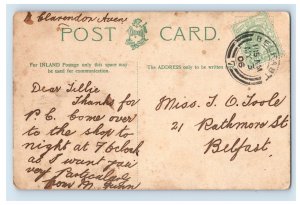 2 Clarendon Aven
POST CARD.
For INLAND Postage only this space may
be used for communication.
The ADDRESS only to be written
Dear Tillie
Thanks for
P.C. Come over
to the shop to
night at 7 Oclock
as I want you
very Particularly
from M.
Miss. T. O. Toole
21 Rathmore St
Belfast.
BELFAST
06